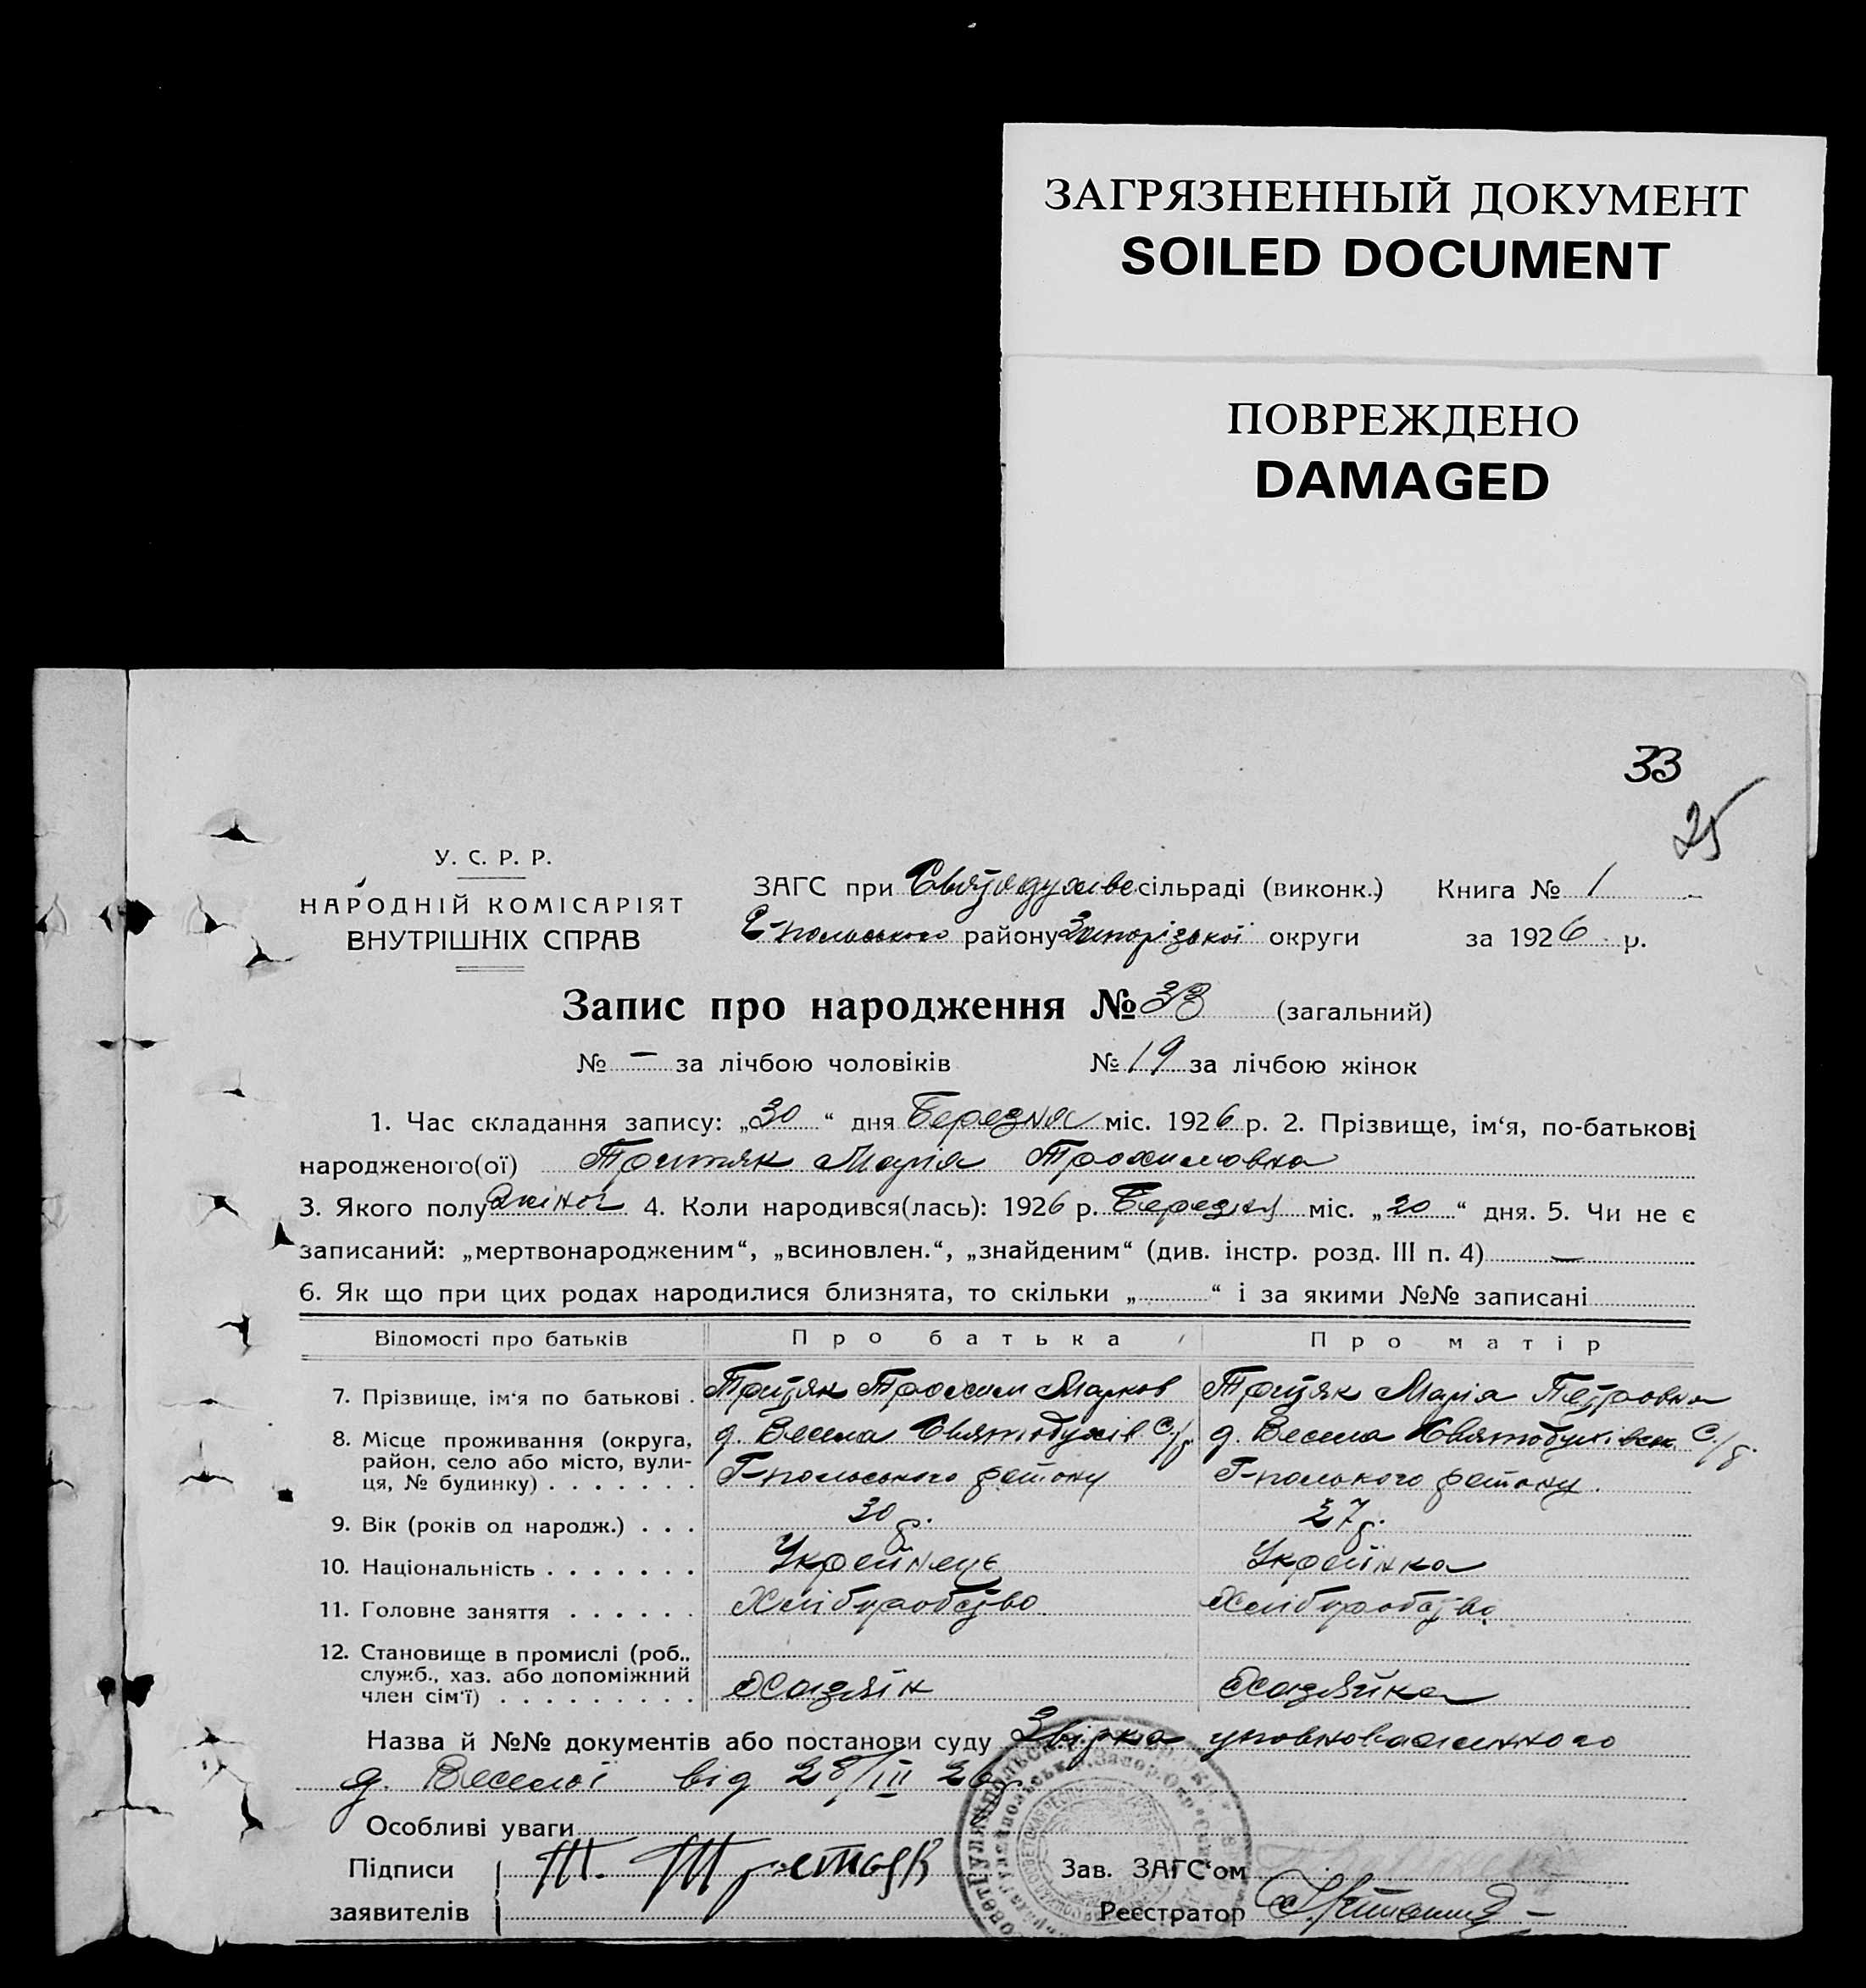 ЗАГРЯЗНЕННЫЙ ДОКУМЕНТ
SOILED DOCUMENT
ПОВРЕЖДЕНО
DAMAGED
33
25
У. С. Р. Р.
НАРОДНІЙ КОМІСАРІЯТ
ВНУТРІШНІХ СПРАВ
ЗАГС при Святодухівс сільраді (виконк.) Книга № 1
Г-польського району Запорізької округи за 1926 р.
Запис про народження № 33 (загальний)
№ — за лічбою чоловіків № 19 за лічбою жінок
1. Час складання запису: „30“ дня Березня міс. 1926 р. 2. Прізвище, ім‘я, по-батькові
народженого(ої) Тритяк Марія Трохимовна
3. Якого полу жіноч 4. Коли народився(лась): 1926 р. Березня міс. „20“ дня. 5. Чи не є
записаний: „мертвонародженим“, „всиновлен.“, „знайденим“ (див. інстр. розд. III п. 4) —
6. Як що при цих родах народилися близнята, то скільки „ “ і за якими №№ записані
Відомості про батьків Про батька Про матір
7. Прізвище, ім‘я по батькові . Тритяк Трохим Марков Тритяк Марія Петровна
8. Місце проживання (округа, д. Весела Святодухів С/р. д. Весела Святодухівск. С/р.
район, село або місто, вули- Г-польського району Г-полького району.
ця, № будинку) . . . . . . .
9. Вік (років од народж.) . . . 30 р. 27 р.
10. Національність . . . . . . . Украйнець Украінка
11. Головне заняття . . . . . . Хліборобство. Хліборобство.
12. Становище в промислі (роб.,
служб., хаз. або допоміжний
член сім‘ї) . . . . . . . . . Хазяїн Хазяйка
Назва й №№ документів або постанови суду Звірка уповноваженного
д. Веселої від 28/III 26
Особливі уваги
Підписи Т. Третьяк Зав. ЗАГС‘ом
заявителів Реєстратор